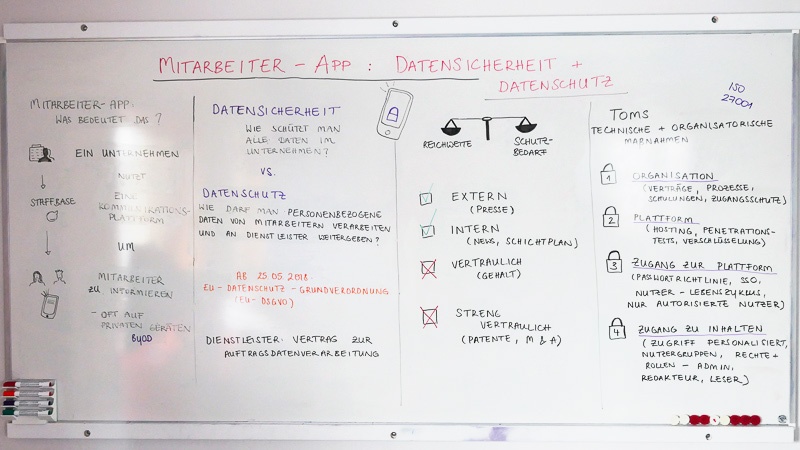 MITARBEITER - APP : DATENSICHERHEIT +
DATENSCHUTZ
ISO
27001
MITARBEITER-APP:
WAS BEDEUTET DAS ?
EIN UNTERNEHMEN
NUTZT
STAFFBASE
EINE
KOMMUNIKATIONS-
PLATTFORM
UM
MITARBEITER
ZU INFORMIEREN
- OFT AUF
PRIVATEN GERÄTEN
BYOD
DATENSICHERHEIT
WIE SCHÜTZT MAN
ALLE DATEN IM
UNTERNEHMEN?
VS.
DATENSCHUTZ
WIE DARF MAN PERSONENBEZOGENE
DATEN VON MITARBEITERN VERARBEITEN
UND AN DIENSTLEISTER WEITERGEBEN?
AB 25.05.2018
EU - DATENSCHUTZ - GRUNDVERORDNUNG
(EU-DSGVO)
DIENSTLEISTER: VERTRAG ZUR
AUFTRAGSDATENVERARBEITUNG
REICHWEITE
SCHUTZ-
BEDARF
EXTERN
(PRESSE)
INTERN
(NEWS, SCHICHTPLAN)
VERTRAULICH
(GEHALT)
STRENG
VERTRAULICH
(PATENTE, M & A)
TOMS
TECHNISCHE + ORGANISATORISCHE
MAßNAHMEN
1 ORGANISATION
(VERTRÄGE, PROZESSE,
SCHULUNGEN, ZUGANGSSCHUTZ)
2 PLATTFORM
(HOSTING, PENETRATIONS-
TESTS, VERSCHLÜSSELUNG)
3 ZUGANG ZUR PLATTFORM
(PASSWORTRICHTLINIE, SSO,
NUTZER-LEBENSZYKLUS,
NUR AUTORISIERTE NUTZER)
4 ZUGANG ZU INHALTEN
(ZUGRIFF PERSONALISIERT,
NUTZERGRUPPEN, RECHTE +
ROLLEN - ADMIN,
REDAKTEUR, LESER)